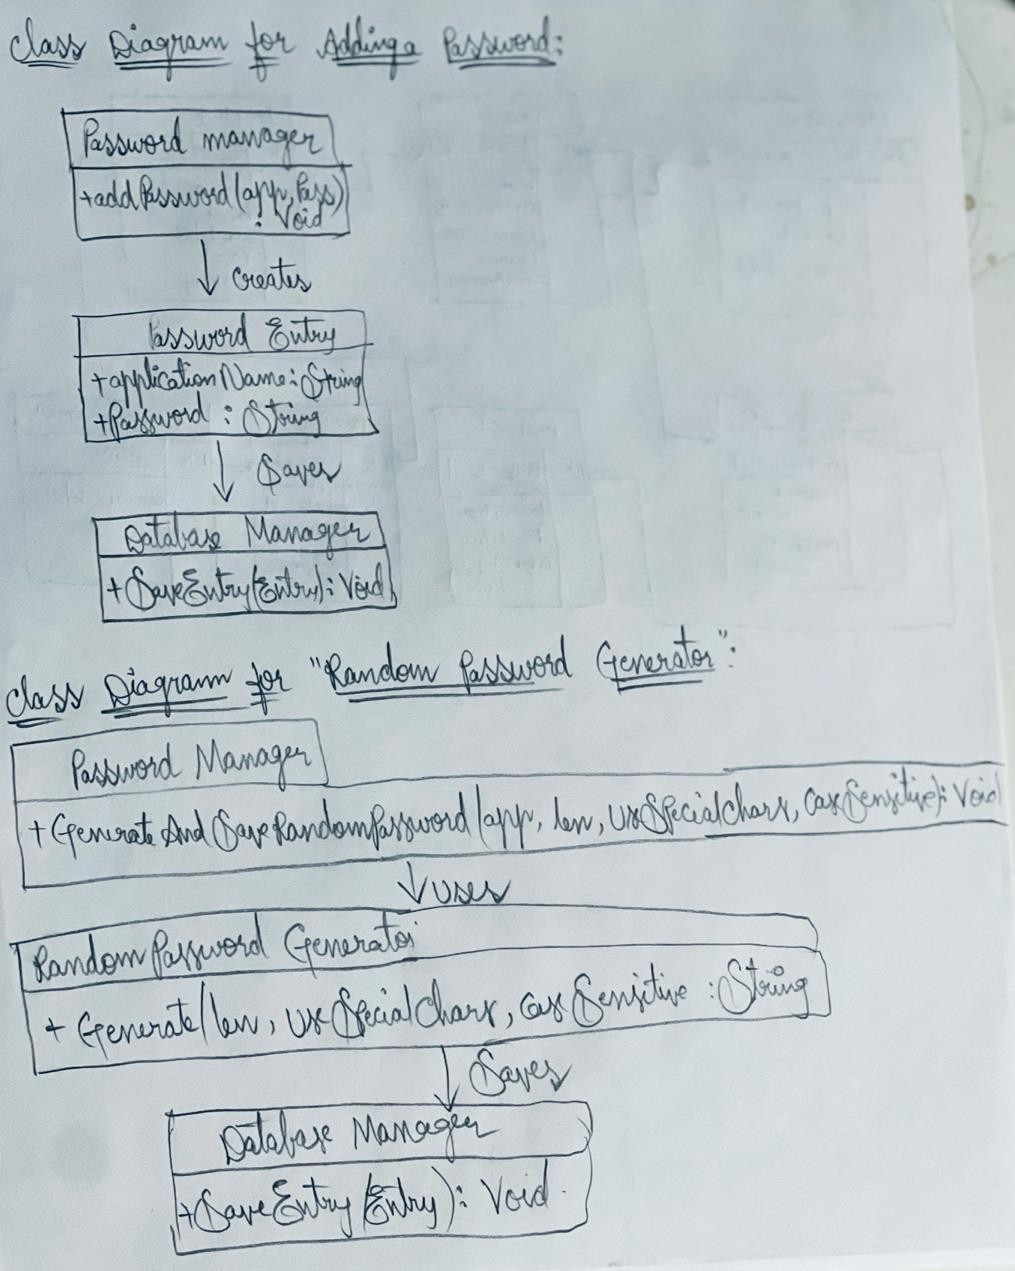 Class Diagram for Adding a Password:
Password manager
+addPassword(app, Pass)
: Void
creates
Password Entry
+applicationName: String
+Password : String
Saves
Database Manager
+ SaveEntry(Entry): Void
Class Diagram for "Random Password Generator":
Password Manager
+ Generate And Save RandomPassword(app, len, useSpecialChars, CaseSensitive): Void
uses
Random Password Generator
+ Generate(len, useSpecialChars, caseSensitive : String
Saves
Database Manager
+SaveEntry(Entry): Void